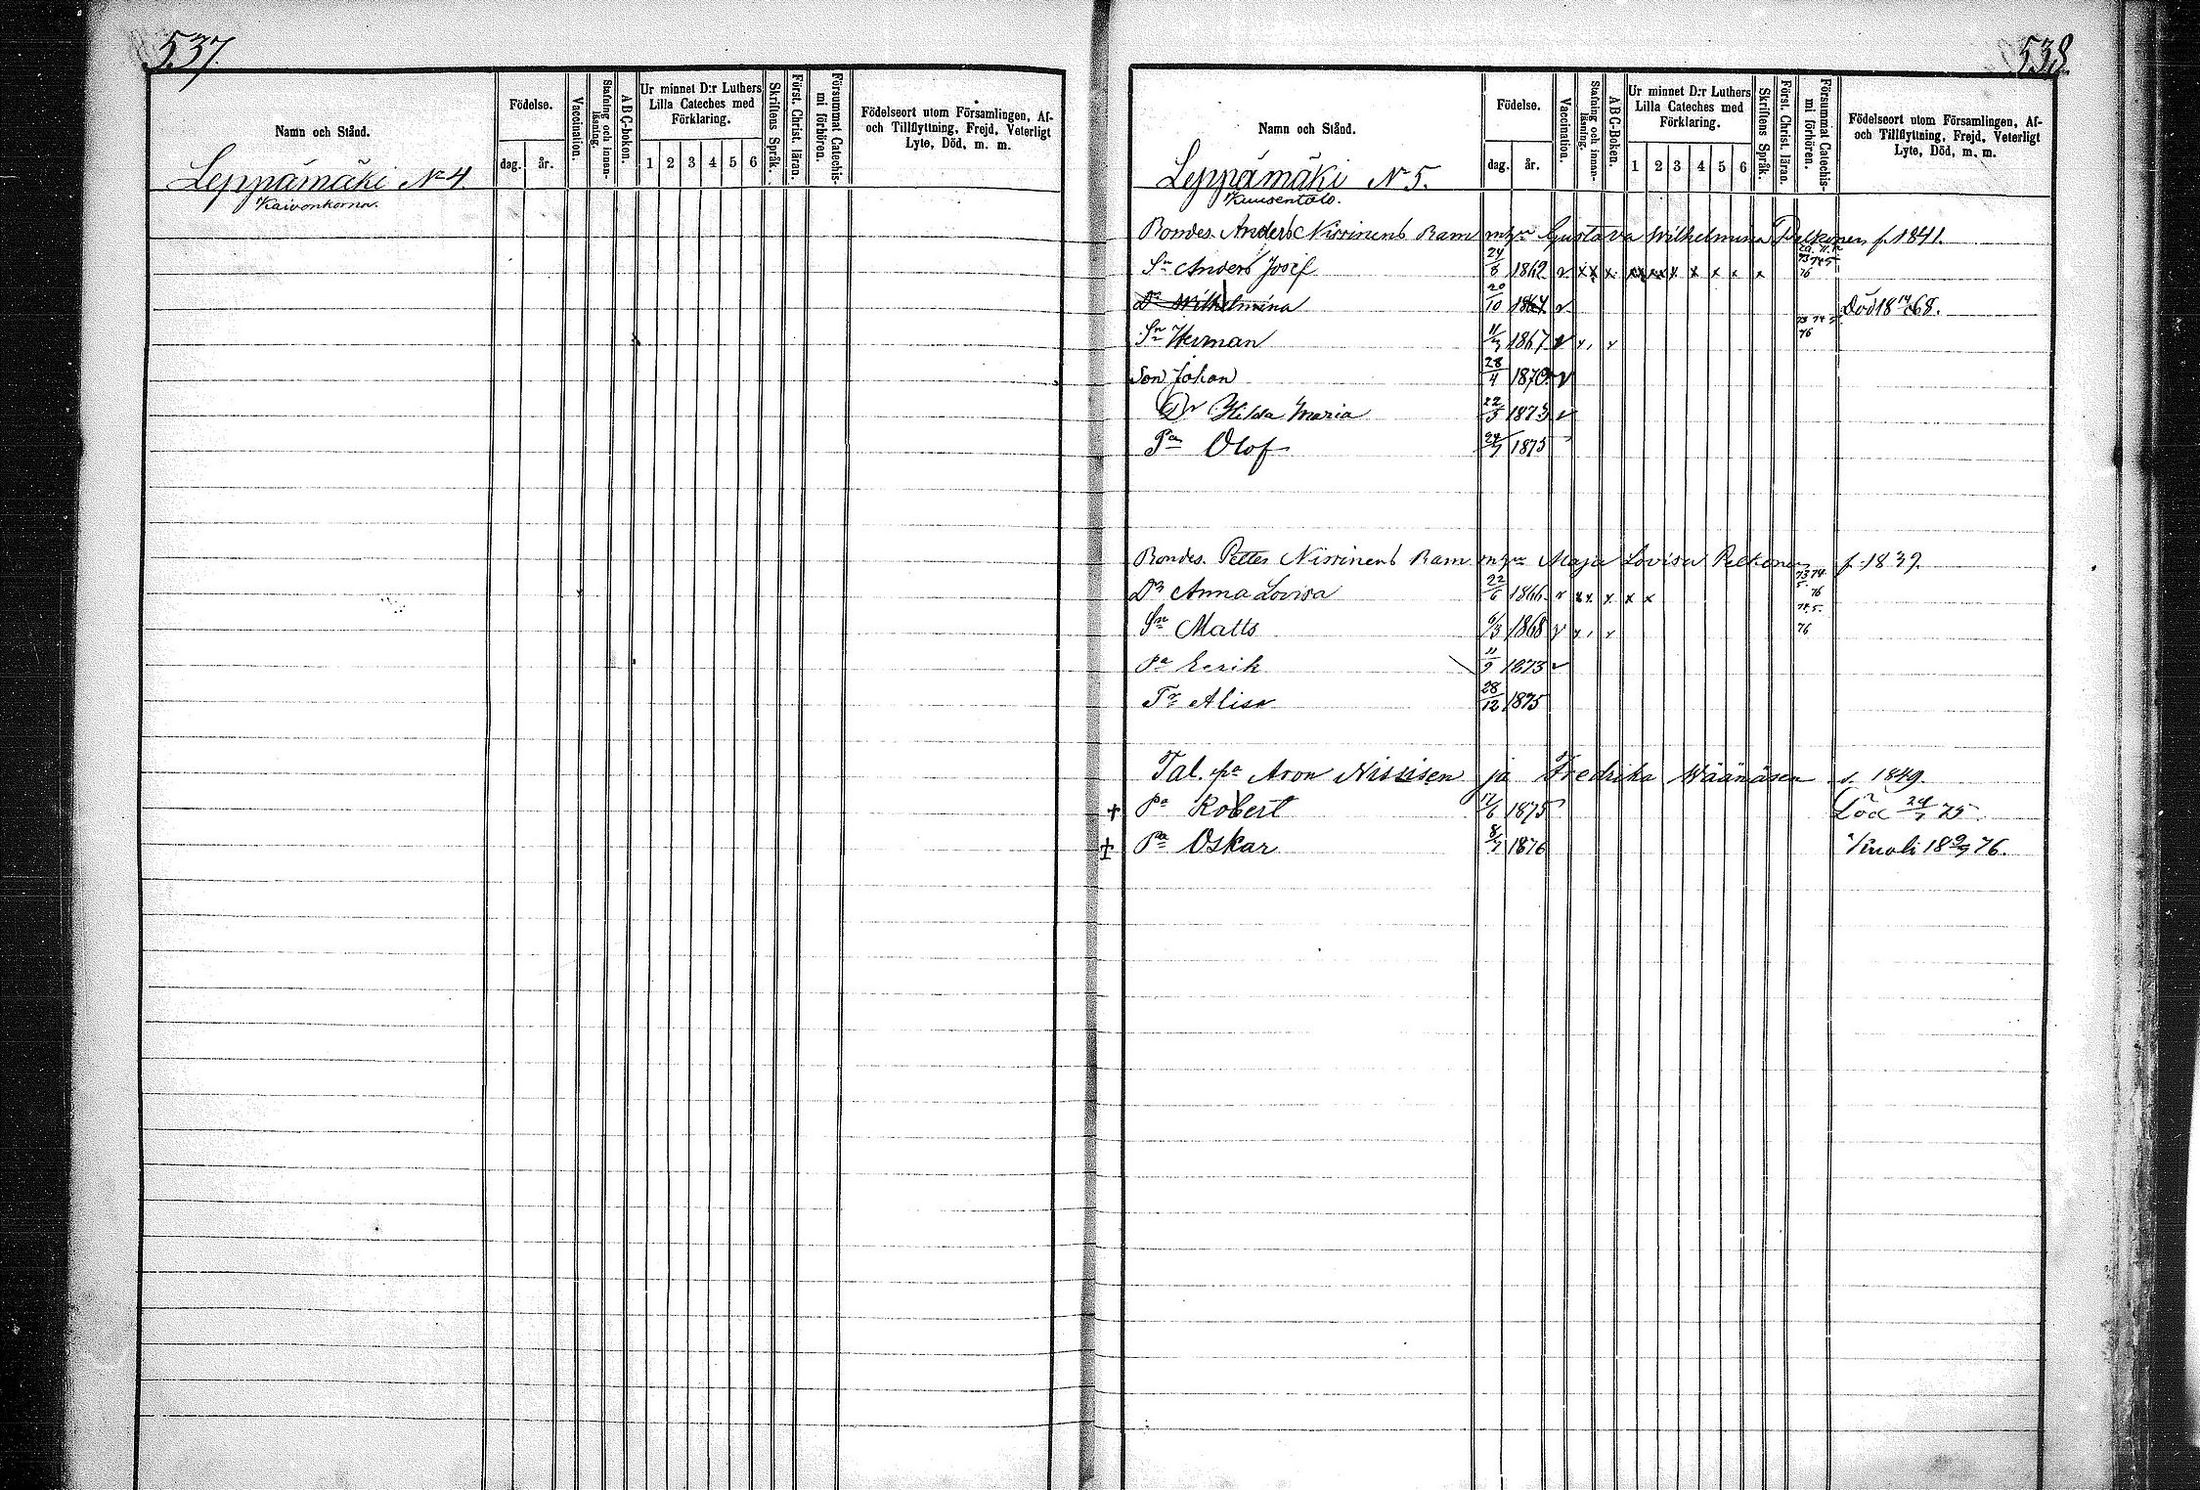 537.
Namn och Stånd.
Födelse.
dag. år.
Vaccination.
Stafning och innanläsning.
ABC-boken.
Ur minnet D:r Luthers Lilla Cateches med Förklaring.
1 2 3 4 5 6
Skriftens Språk.
Först. Christ. läran.
Försummat Catechismi förhören.
Födelseort utom Församlingen, Af- och Tillflyttning, Frejd, Veterligt Lyte, Död, m. m.
Leppämäki N 4.
538.
Namn och Stånd.
Födelse.
dag. år.
Vaccination.
Stafning och innanläsning.
ABC-Boken.
Ur minnet D:r Luthers Lilla Cateches med Förklaring.
1 2 3 4 5 6
Skriftens Språk.
Först. Christ. läran.
Försummat Catechismi förhören.
Födelseort utom Församlingen, Af- och Tillflyttning, Frejd, Veterligt Lyte, Död, m. m.
Leppämäki N 5.
Bondes. Anders Nissinens Barn m h:n Gustava Wilhelmina Pelkonen f. 1841.
Sn Anders Josef 24/8 1862
Dr Wilhelmina 20/10 1864 Död 18 68.
Sn Herman 1867
Son Johan 28/4 1870
Dr Hilda Maria 22/3 1873
Pa Olof 1875
Bondes. Petter Nissinens Barn m h:n Maja Lovisa Pelkonen f. 1839.
Dr Anna Lovisa 22/6 1866
Sn Matts 6/3 1868
Pa Eerik 11/9 1873
Tr Alisa 28/12 1875
Tal. pa Aron Nissisen ja Fredrika Wäänäsen s. 1849.
+ Pa Robert 17/6 1875 Död 24/7 75.
+ Pa Oskar 8/7 1876 Kuoli 18 9/7 76.